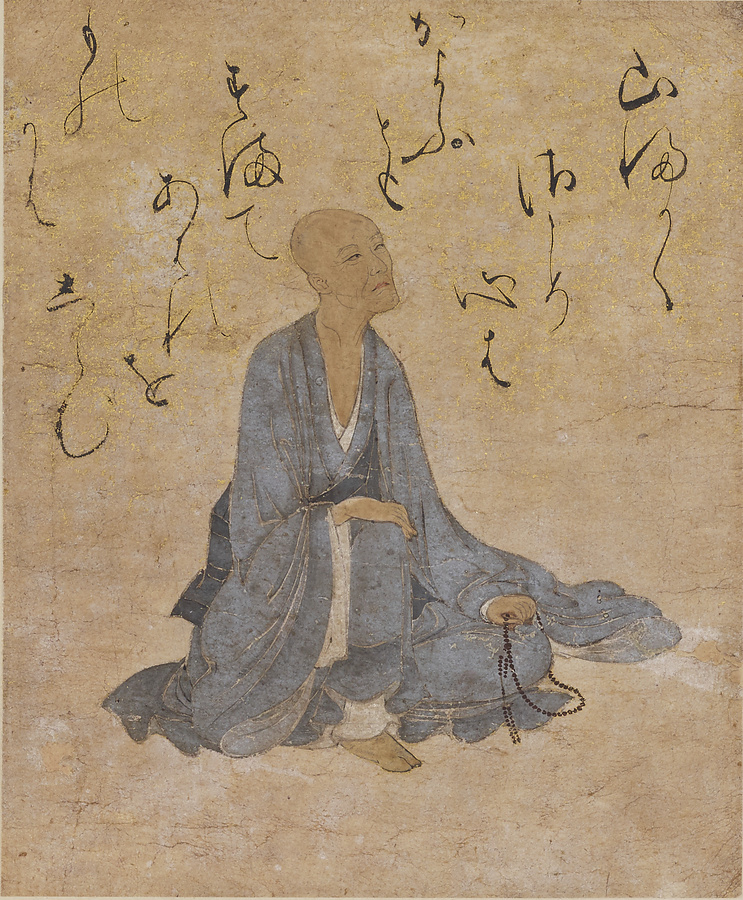 山ふかく
さこそ
心は
かよふ
とも
すまて
あはれ
を
しらむ
もの
かは